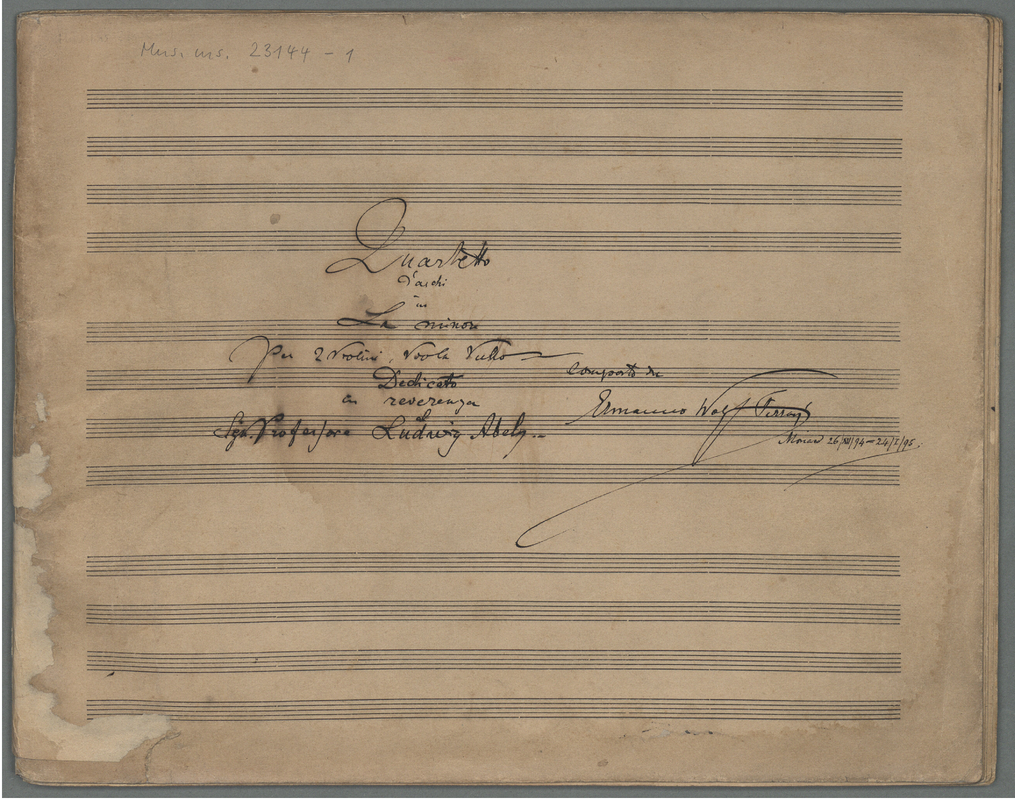 Mus. ms. 23144-1
Quartetto
d'archi
in
La minore
Per 2 Violini, Viola Vcello
Dedicato
in reverenza
al
Sgr. Professore Ludwig Abel
composto da
Ermanno Wolf Ferrari
26/XII/94–24/I/95